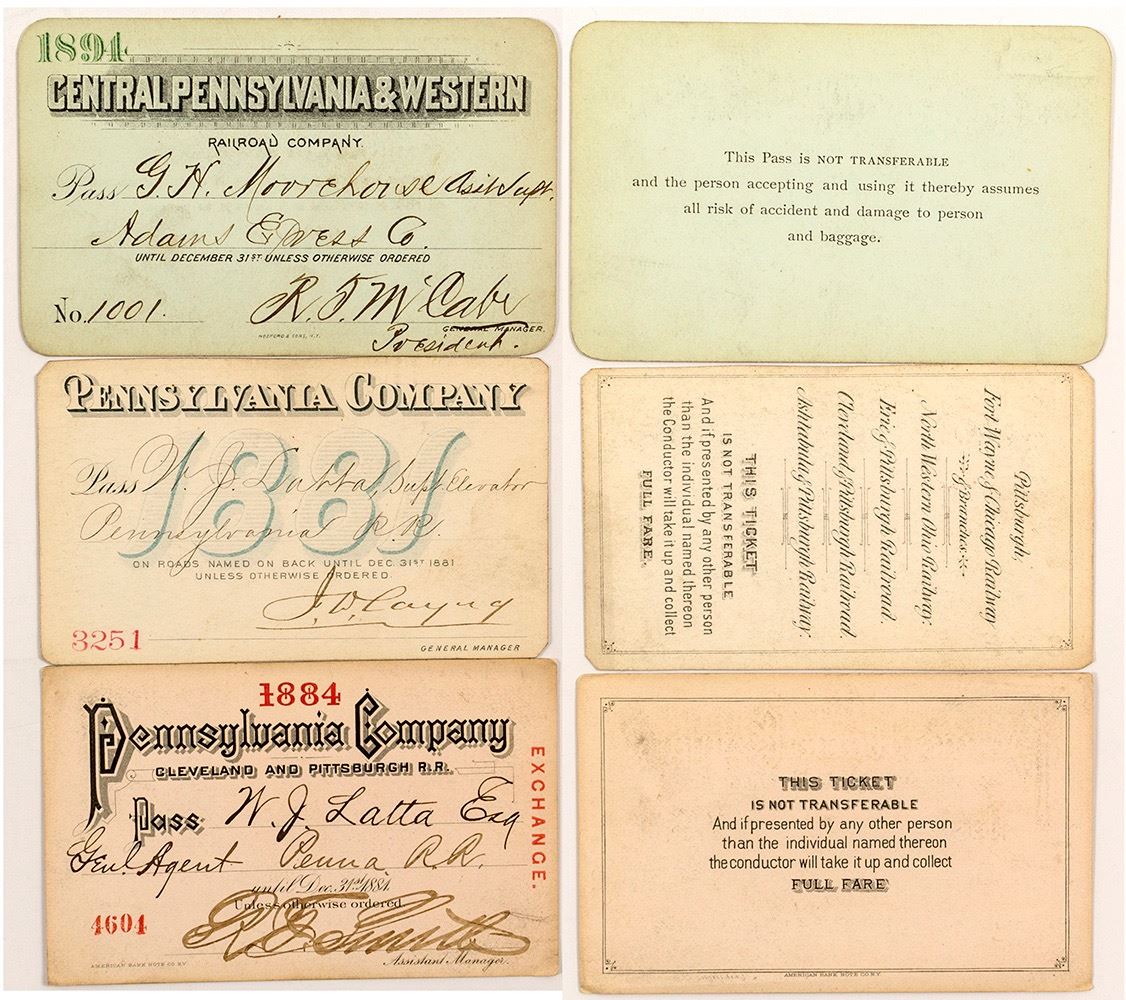 1894
CENTRAL PENNSYLVANIA & WESTERN
RAILROAD COMPANY.
Pass G. H. Moorehouse Asst Supt.
Adams Express Co.
UNTIL DECEMBER 31ST UNLESS OTHERWISE ORDERED
No. 1001.
R. F. McCabe
GENERAL MANAGER.
President.
This Pass is NOT TRANSFERABLE
and the person accepting and using it thereby assumes
all risk of accident and damage to person
and baggage.
PENNSYLVANIA COMPANY
1881
Pass W. J. Latta, Supt Elevator
Pennsylvania R.R.
ON ROADS NAMED ON BACK UNTIL DEC. 31ST 1881
UNLESS OTHERWISE ORDERED.
3251
GENERAL MANAGER
Pittsburgh,
Fort Wayne & Chicago Railway
& Branches
North Western Ohio Railway.
Erie & Pittsburgh Railroad.
Cleveland & Pittsburgh Railroad.
Ashtabula & Pittsburgh Railway.
THIS TICKET
IS NOT TRANSFERABLE
And if presented by any other person
than the individual named thereon
the Conductor will take it up and collect
FULL FARE.
1884
Pennsylvania Company
CLEVELAND AND PITTSBURGH R.R.
EXCHANGE.
Pass W. J. Latta Esq
Genl. Agent Penna R.R.
until Dec. 31st 1884.
Unless otherwise ordered.
4604
Assistant Manager.
AMERICAN BANK NOTE CO. N.Y.
THIS TICKET
IS NOT TRANSFERABLE
And if presented by any other person
than the individual named thereon
the conductor will take it up and collect
FULL FARE
AMERICAN BANK NOTE CO. N.Y.